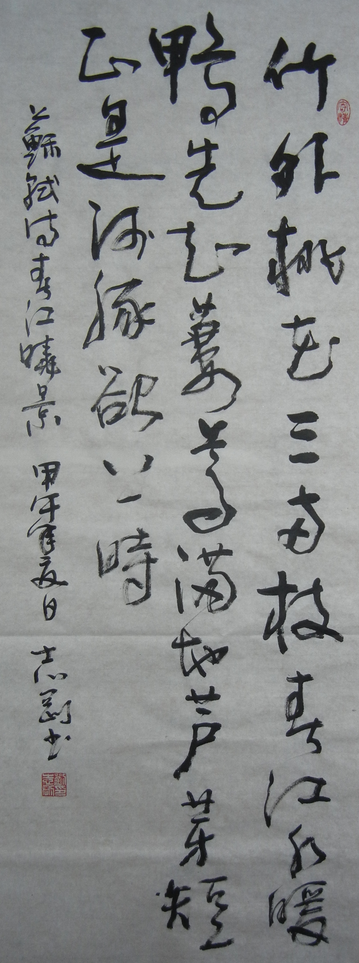 竹外桃花三两枝春江水暖
鸭先知蒌蒿满地芦芽短
正是河豚欲上時
蘇軾诗春江曉景 甲午年夏日 志剛书